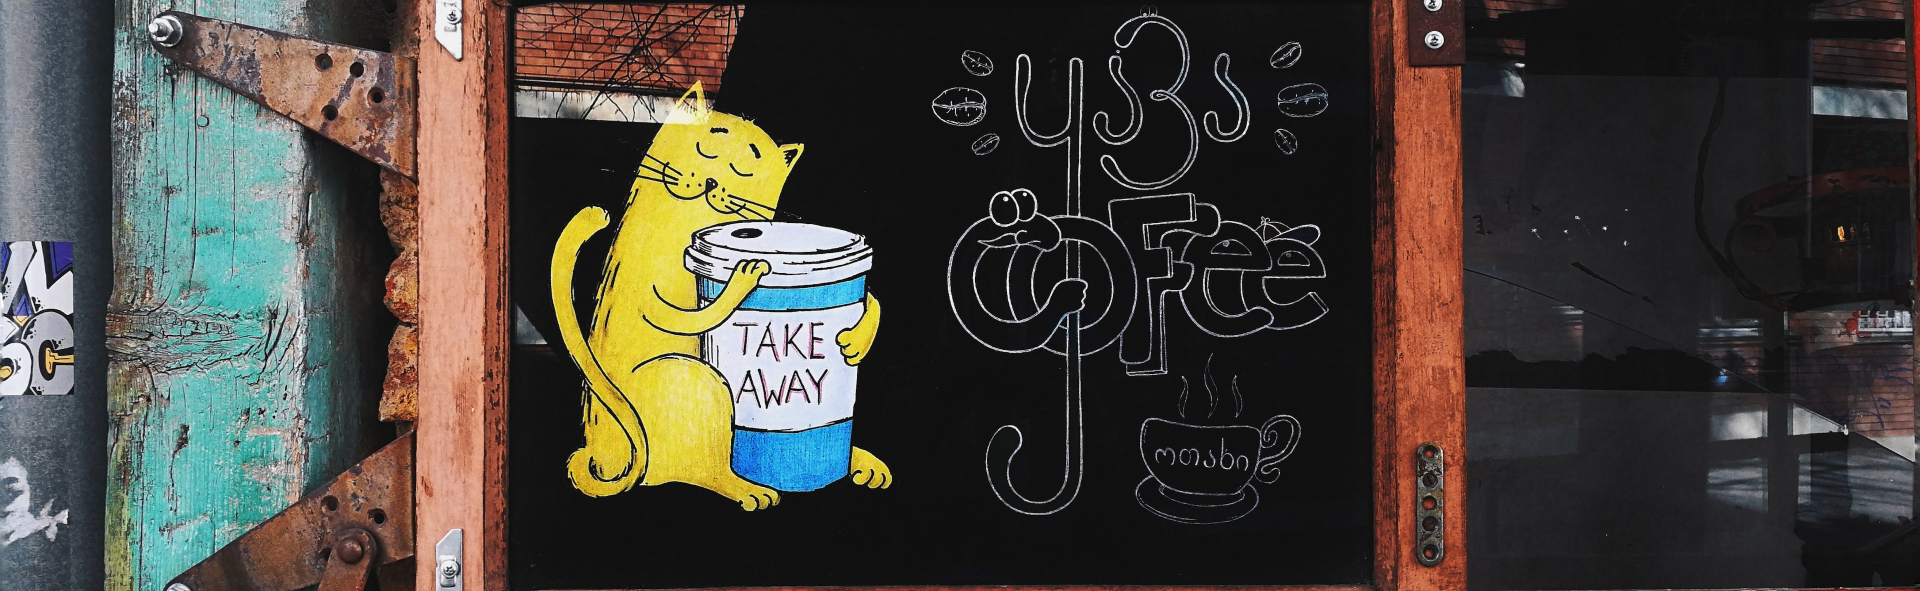 TAKE
AWAY
ყავა
COFFEE
ოთახი